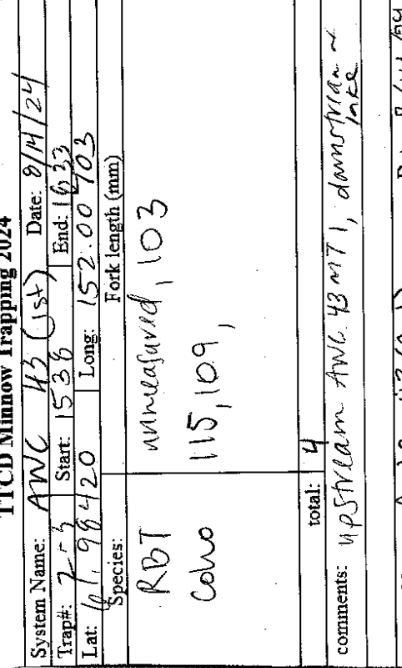 TTCD Minnow Trapping 2024
System Name: AWC 43 (1st) Date: 8/14/24
Trap#: 2-3 Start: 1536 End: 1633
Lat: 61.98420 Long: 152.00703
Species: Fork length (mm)
RBT unmeasured, 103
Coho 115, 109,
total: 4
comments: upstream AWC 43 MT 1, downstream ~
lake